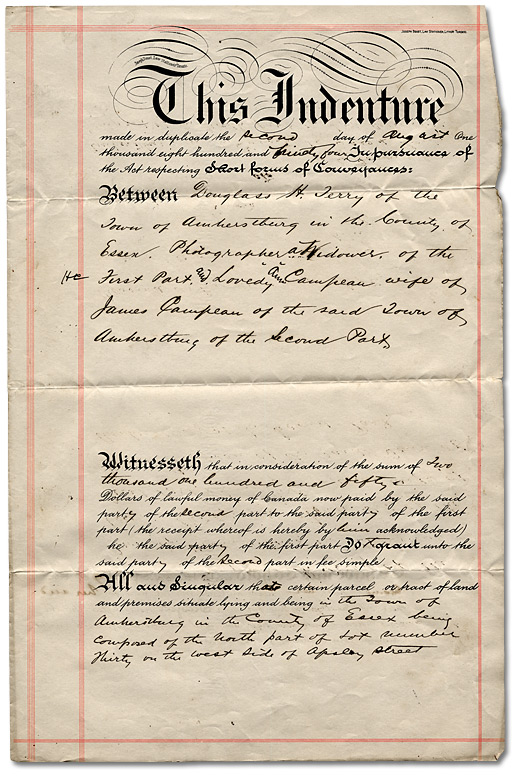 Joseph Doust, Law Stationer, Lith'r Toronto.
This Indenture
made in duplicate the second day of August One
thousand eight hundred and ninety four In pursuance of
the Act respecting Short forms of Conveyances:
Between Douglass H. Terry of the
Town of Amherstburg in the County of
Essex. Photographer a Widower, of the
First Part & Lovedy Ann Campeau wife of
James Campeau of the said Town of
Amherstburg of the Second Part,
Witnesseth that in consideration of the sum of Two
thousand one hundred and fifty
Dollars of lawful money of Canada now paid by the said
party of the second part to the said party of the first
part (the receipt whereof is hereby by him acknowledged)
he the said party of the first part Doth grant unto the
said party of the second part in fee simple
All and Singular that certain parcel or tract of land
and premises situate lying and being in the Town of
Amherstburg in the County of Essex being
composed of the North part of Lot number
Thirty on the West Side of Apsley street